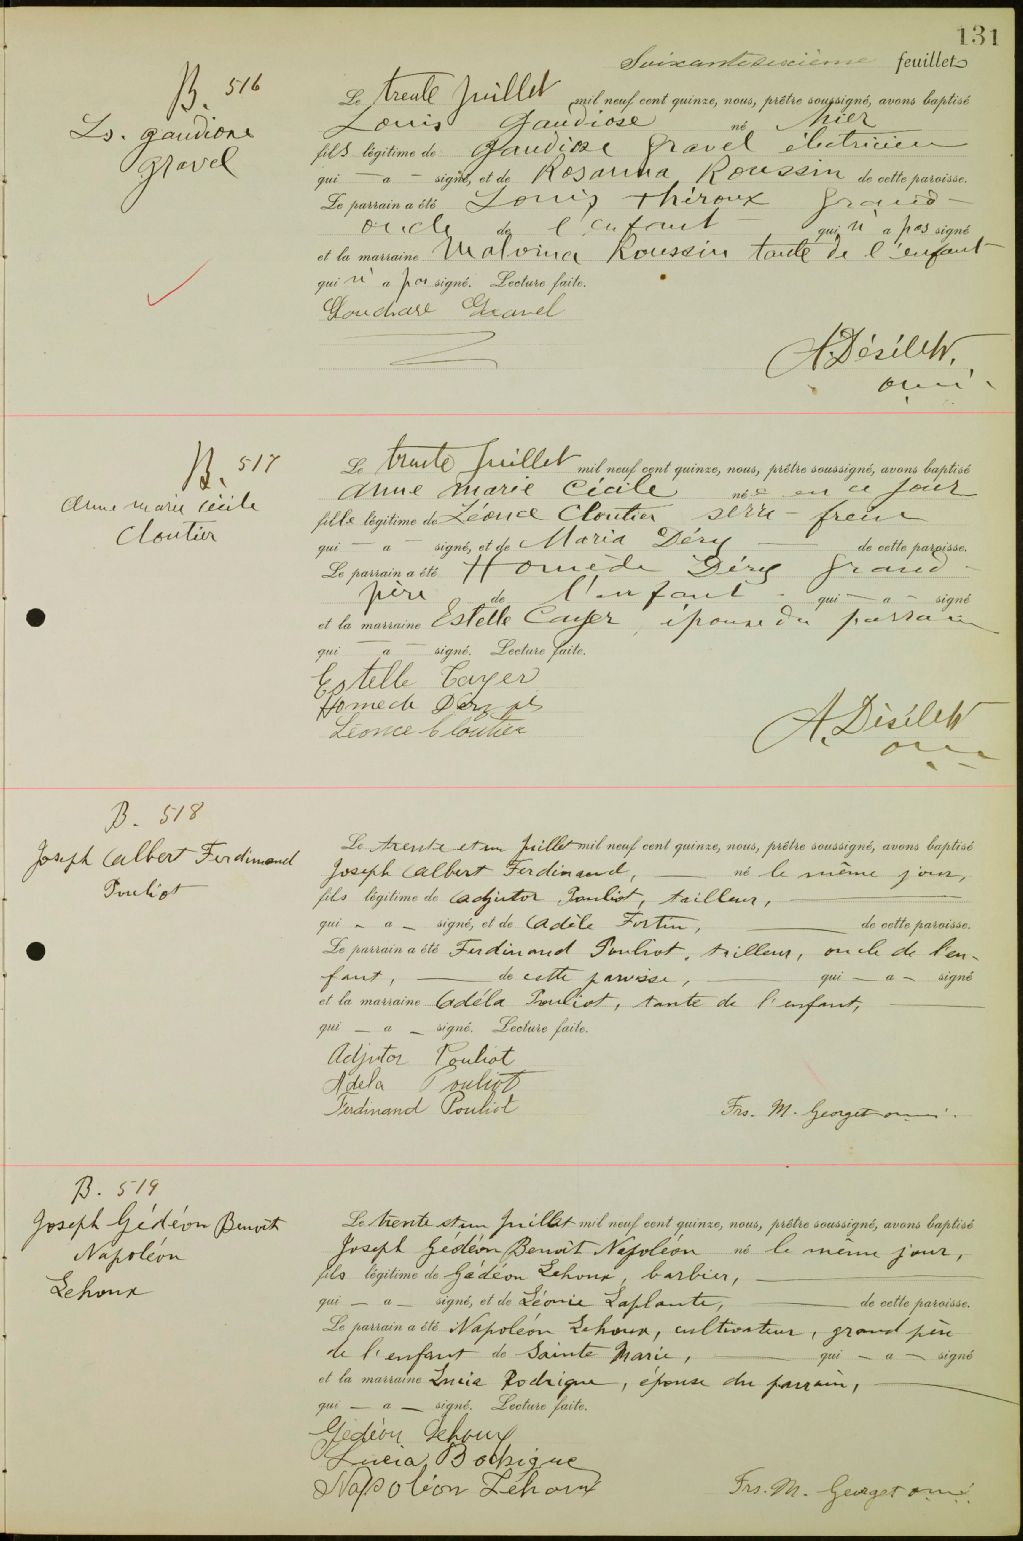 131
Soixante sixième feuillet
B. 516
Ls. Gaudiose
Gravel
Le trente Juillet mil neuf cent quinze, nous, prêtre soussigné, avons baptisé
Louis Gaudiose né hier
fils légitime de Gaudiose Gravel électricien
qui — a — signé, et de Rosanna Roussin de cette paroisse.
Le parrain a été Louis Théroux grand-
oncle de l'enfant qui n'a pas signé
et la marraine Malvina Roussin tante de l'enfant
qui n'a pas signé. Lecture faite.
Gaudiose Gravel
A. Désilets,
omi
B. 517
Anne marie Cécile
Cloutier
Le trente Juillet mil neuf cent quinze, nous, prêtre soussigné, avons baptisé
Anne Marie Cécile née en ce jour
fille légitime de Léonce Cloutier serre-frein
qui — a — signé, et de Maria Déry — de cette paroisse.
Le parrain a été Homède Déry grand-
père de l'enfant - qui — a — signé
et la marraine Estelle Cayer, épouse du parrain
qui — a — signé. Lecture faite.
Estelle Cayer
Homede Dery
Léonce Cloutier
A. Désilets
omi
B. 518
Joseph Albert Ferdinand
Pouliot
Le trente et un Juillet mil neuf cent quinze, nous, prêtre soussigné, avons baptisé
Joseph Albert Ferdinand, — né le même jour,
fils légitime de Adjutor Pouliot, tailleur, —
qui — a — signé, et de Adèle Fortin, — de cette paroisse.
Le parrain a été Ferdinand Pouliot, tailleur, oncle de l'en-
fant, — de cette paroisse, — qui — a — signé
et la marraine Adéla Pouliot, tante de l'enfant, —
qui — a — signé. Lecture faite.
Adjutor Pouliot
Adela Pouliot
Ferdinand Pouliot
Frs. M. Georget omi.
B. 519
Joseph Gédéon Benoit
Napoléon
Lehoux
Le trente et un Juillet mil neuf cent quinze, nous, prêtre soussigné, avons baptisé
Joseph Gédéon Benoît Napoléon né le même jour,
fils légitime de Gédéon Lehoux, barbier, —
qui — a — signé, et de Léonie Laplante, — de cette paroisse.
Le parrain a été Napoléon Lehoux, cultivateur, grand père
de l'enfant de Sainte Marie, — qui — a — signé
et la marraine Lucia Rodrigue, épouse du parrain, —
qui — a — signé. Lecture faite.
Gédéon Lehoux
Lucia Rodrigue
Napoléon Lehoux
Frs. M. Georget omi.